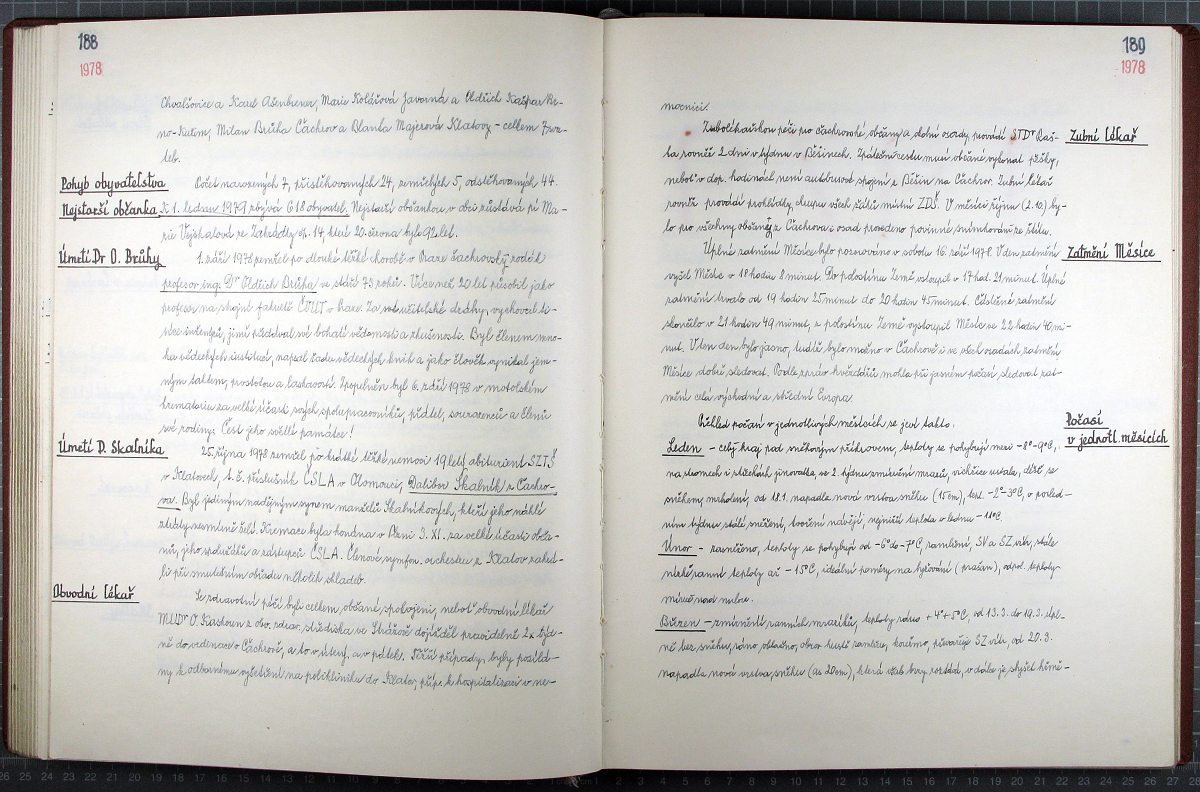 188
1978
Chvalšovice a Karel Ašenbrener, Marie Kolářová Javorná a Oldřich Kašpar Br-
no-Kuřim, Milan Brůha Čachrov a Blanka Majerová Klatovy - celkem 7 svo-
teb.
Pohyb obyvatelstva
Počet narozených 7, přistěhovaných 24, zemřelých 5, odstěhovaných 44.
Nejstarší občanka
K 1. lednu 1979 zbývá 618 obyvatel. Nejstarší občankou v obci zůstává pí Ma-
rie Vojskalová ze Zahrádky čp. 14, které 20. února bylo 92 let.
Úmrtí Dr O. Brůhy
1. září 1978 zemřel po dlouhé těžké chorobě v Praze čachrovský rodák
profesor ing. Dr Oldřich Brůha ve stáří 73 roků. Více než 20 let působil jako
profesor na strojní fakultě ČVUT v Praze. Za své učitelské dráhy, vychoval ti-
síce inženýrů, jimž předával své bohaté vědomosti a zkušenosti. Byl členem mno-
ha vědeckých institucí, napsal řadu vědeckých knih a jako člověk vynikal jem-
ným taktem, prostotou a laskavostí. Zpopelněn byl 6. září 1978 v motolském
krematoriu za velké účasti svých spolupracovníků, přátel, sourozenců a členů
své rodiny. Čest jeho světlé památce!
Úmrtí D. Skalníka
25. října 1978 zemřel po krátké těžké nemoci 19letý abiturient SZTŠ
v Klatovech, t. č. příslušník ČSLA v Olomouci, Dalibor Skalník z Čachro-
va. Byl jediným nadějným synem manželů Skalníkových, kteří jeho náhlé
ztráty nesmírně želí. Kremace byla konána v Plzni 3. XI. za velké účasti obča-
nů, jeho spolužáků a zástupců ČSLA. Členové symfon. orchestru z Klatov zahrá-
li při smutečním obřadu několik skladeb.
Obvodní lékař
Se zdravotní péčí byli celkem, občané spokojeni, neboť obvodní lékař
MUDr O. Kirchner z obv. zdrav. střediska ve Strážově dojížděl pravidelně 2x týd-
ně do ordinace v Čachrově, a to v úterý, a v pátek. Těžší případy, byly posílá-
ny k odbornému vyšetření na polikliniku do Klatov, příp. k hospitalizaci v ne-
189
1978
mocnici.
Zubní lékař
Zubolékařskou péči pro čachrovské, občany a okolní osady, provádí STDr Raš-
ka rovněž 2 dni v týdnu v Běšinech. Zpáteční cestu musí občané vykonat pěšky,
neboť v dop. hodinách, není autobusové spojení z Běšin na Čachrov. Zubní lékař
rovněž provádí prohlídky, chrupu všech žáků místní ZDŠ. V měsíci říjnu (2. 10.) by-
lo pro všechny občany z Čachrova i osad provedeno povinné snímkování ze štítu.
Zatmění Měsíce
Úplné zatmění Měsíce bylo pozorováno v sobotu 16. září 1978. V den zatmění
vyšel Měsíc v 18 hodin 8 minut. Do polostínu Země vstoupil v 17 hod. 21 minut. Úplné
zatmění trvalo od 19 hodin 25 minut do 20 hodin 45 minut. Částečné zatmění
skončilo v 21 hodin 49 minut, z polostínu Země vystoupil Měsíc ve 22 hodin 46 mi-
nut. V ten den bylo jasno, tudíž bylo možno v Čachrově i ve všech osadách zatmění
Měsíce dobře sledovat. Podle zpráv hvězdářů mohla při jasném počasí, sledovat zat-
mění celá východní a střední Evropa.
Počasí
v jednotl. měsících
Přehled počasí v jednotlivých měsících se jeví takto.
Leden - celý kraj pod sněhovým příkrovem, teploty se pohybují mezi -8°-9°C,
na stromech i střechách jinovatka, ve 2. týdnu zmírnění mrazů, vichřice ustala, déšť se
sněhem, mrholení, od 18.1. napadla nová vrstva sněhu (15cm), tepl. -2°-3°C, v posled-
ním týdnu stálé sněžení, tvoření návějí, nejnižší teplota v lednu -11°C.
Únor - zasněženo, teploty se pohybují od -6° do -7°C, zamlžení, SV a SZ vítr, stále
nízké ranní teploty až -15°C, ideální poměry na lyžování (prašan), odpol. teploty
mírně nad nulou.
Březen - zmírnění ranních mrazíků, teploty ráno +4°+5°C, od 13.3. do 19.3. úpl-
ně bez sněhu, ráno, oblačno, obzor hustě zamlžen, kouřmo, převažuje SZ vítr, od 20.3.
napadla nová vrstva, sněhu (as 20cm), která však brzy roztává, v dálce je slyšet hřmě-